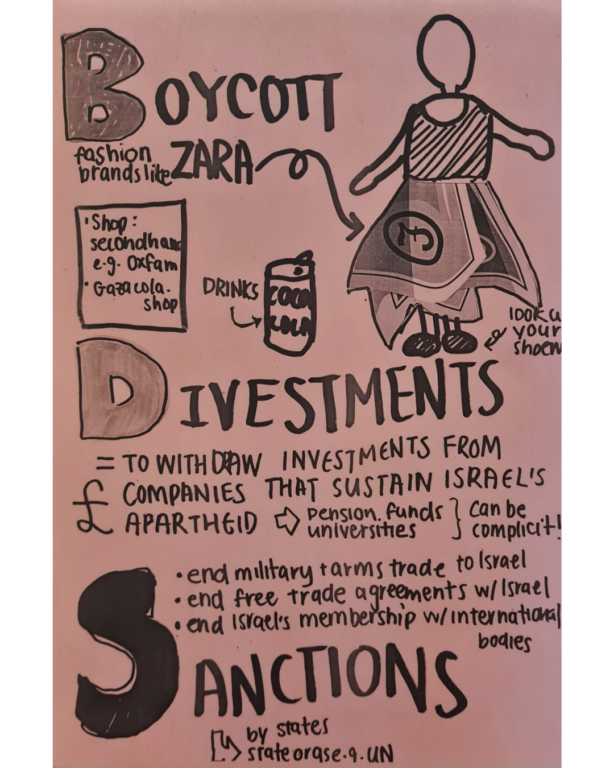 BOYCOTT
fashion
brands like ZARA
• Shop:
secondhand
e.g. Oxfam
• Gaza cola.
shop
DRINKS
COCA
COLA
look u
your
shoew
DIVESTMENTS
= TO WITHDRAW INVESTMENTS FROM
£ COMPANIES THAT SUSTAIN ISRAEL'S
APARTHEID ⇨ pension funds
universities } can be
complicit!
• end military + arms trade to Israel
• end free trade agreements w/ Israel
• end Israel's membership w/ international
bodies
SANCTIONS
by states
state orgs e.g. UN